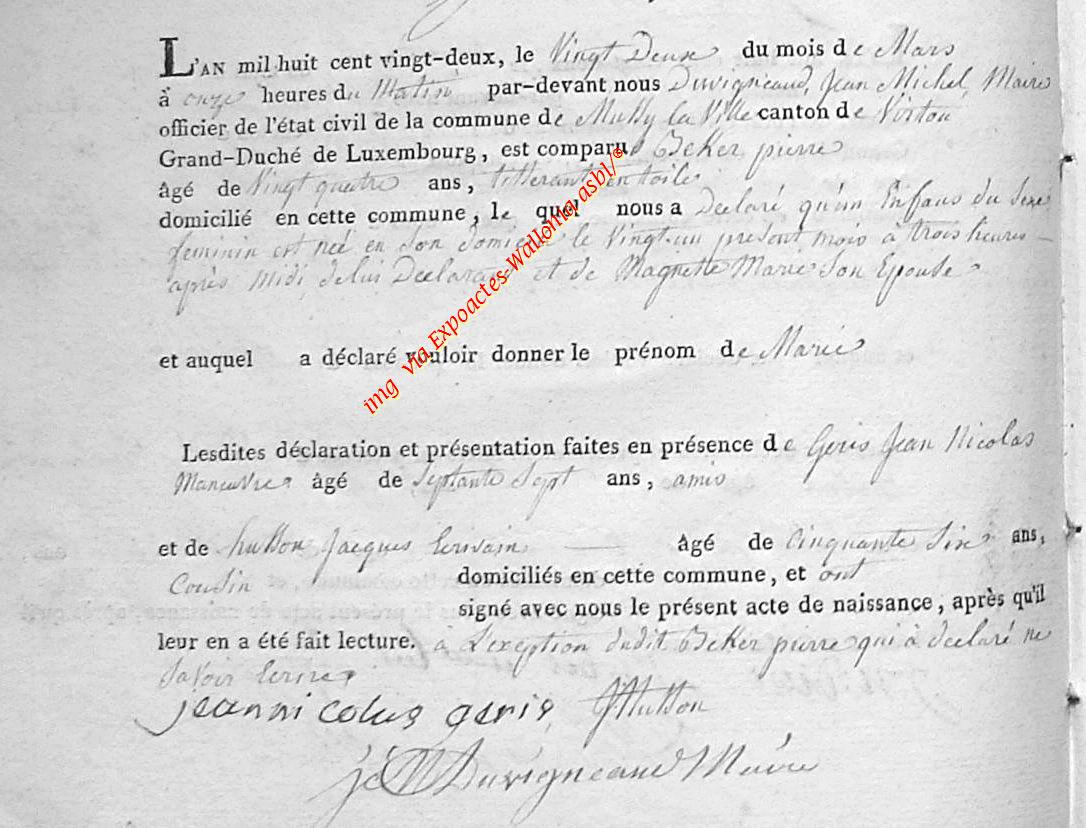 L'AN mil huit cent vingt-deux, le Vingt Deux du mois de Mars
à onze heures du Matin par-devant nous Duvigneaud, Jean Michel, Maire
officier de l'état civil de la commune de Mussy la Ville canton de Virton
Grand-Duché de Luxembourg, est comparu Beker pierre
âgé de Vingt quatre ans, en toile
domicilié en cette commune, le quel nous a Declaré qu'un Enfans du sexe
feminin est neé en son domicile le Vingt-un present mois à trois heures
après Midi de lui Declarant et de Magnette Marie Son Epouse
et auquel a déclaré vouloir donner le prénom de Marie
Lesdites déclaration et présentation faites en présence de Geris Jean Nicolas
Maneuvre âgé de Septante Sept ans, amis
et de husson Jacques Ecrivain âgé de Cinquante Six ans,
Cousin domiciliés en cette commune, et ont
signé avec nous le présent acte de naissance, après qu'il
leur en a été fait lecture. a L'exeption dudit Beker pierre qui à declaré ne
Savoir Ecrire
jeannicolas geris JHusson
J M Duvigneaud Maire
img via Expoactes-Wallonia asbl/©